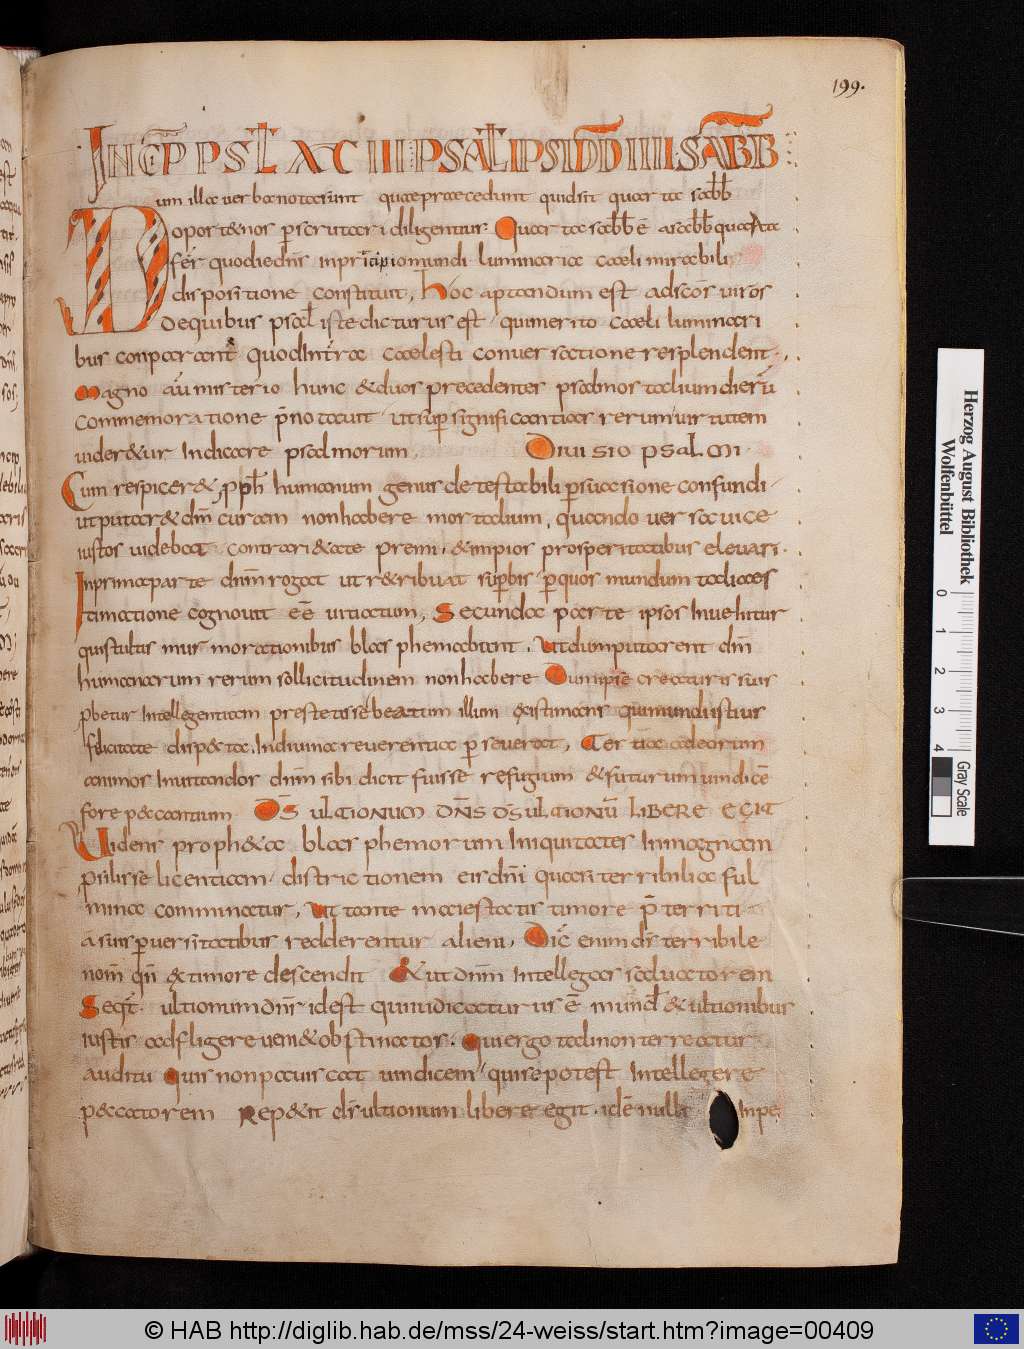 199.
INCP PSL XCIII PSAL IPSI DD IIII SABB
Dum illa verba notaverunt quae praecedunt quid sit quarta sabb
oportet nos perscrutari diligentius Quarta sabb ē a sabb quarta
fer quo die dns in principio mundi luminaria caeli mirabili
dispositione constituit, hoc aptandum est ad scos viros
de quibus psal iste dicturus est, qui merito caeli luminari
bus conparant quod Intra caelesti conversatione resplendent
Magno au misterio hunc & duos precedentes psalmos talium dieru
commemoratione pnotavit ut sup significantias rerum virtutem
videretur Indicare psalmorum. Divisio psalmi
Cum respiceret pph humanum genus detestabili persuasione confundi
ut putaret dm curam non habere mortalium, quando versa vice
iustos videbat contrarietate premi, & impios prosperitatibus elevari
In prima parte dnm rogat ut retribuat superbis per quos mundum tali
aestimatione cognovit eē vitiatum, Secunda parte ipsos Invehitur
qui stultis murmorationibus blasphemabant, ut dum putarent dm
humanarum rerum sollicitudinem non habere Dum ipse creaturis suis
probetur Intellegentiam prestetisse beatum illum estimans qui mundi istius
felicitate dispecta, In divina reverentia perseverat, Tertia adeorum
animos Invitandos dnm sibi dicit fuisse refugium & futurum vindicē
fore peccantium DS ULTIONUM DNS DS ULTIONU LIBERE EGIT
Videns propheta blasphemorum Iniquitates In magnam
prilisse licentiam districtionem ei dni quasi terribilia ful
mina comminatur, ut tante maiestatis timore pterriti
a suis perversitatibus redderentur alieni, Dic enim dn terribile
nom qn & timore descendit Et ut dnm Intellegas salvatorem
Seqt ultionum dns id est qui iudicaturus ē mund & ultionibus
iustis adfligere venit obstinatos. Qui ergo tali non terreatur
auditu Quis non paviscat vindicem, quise potest Intellegere
peccatorem Repetit ds ultionum libere egit. idē nulli Inpe
Herzog August Bibliothek
Wolfenbüttel
0 1 2 3 4
Gray Scale
© HAB http://diglib.hab.de/mss/24-weiss/start.htm?image=00409